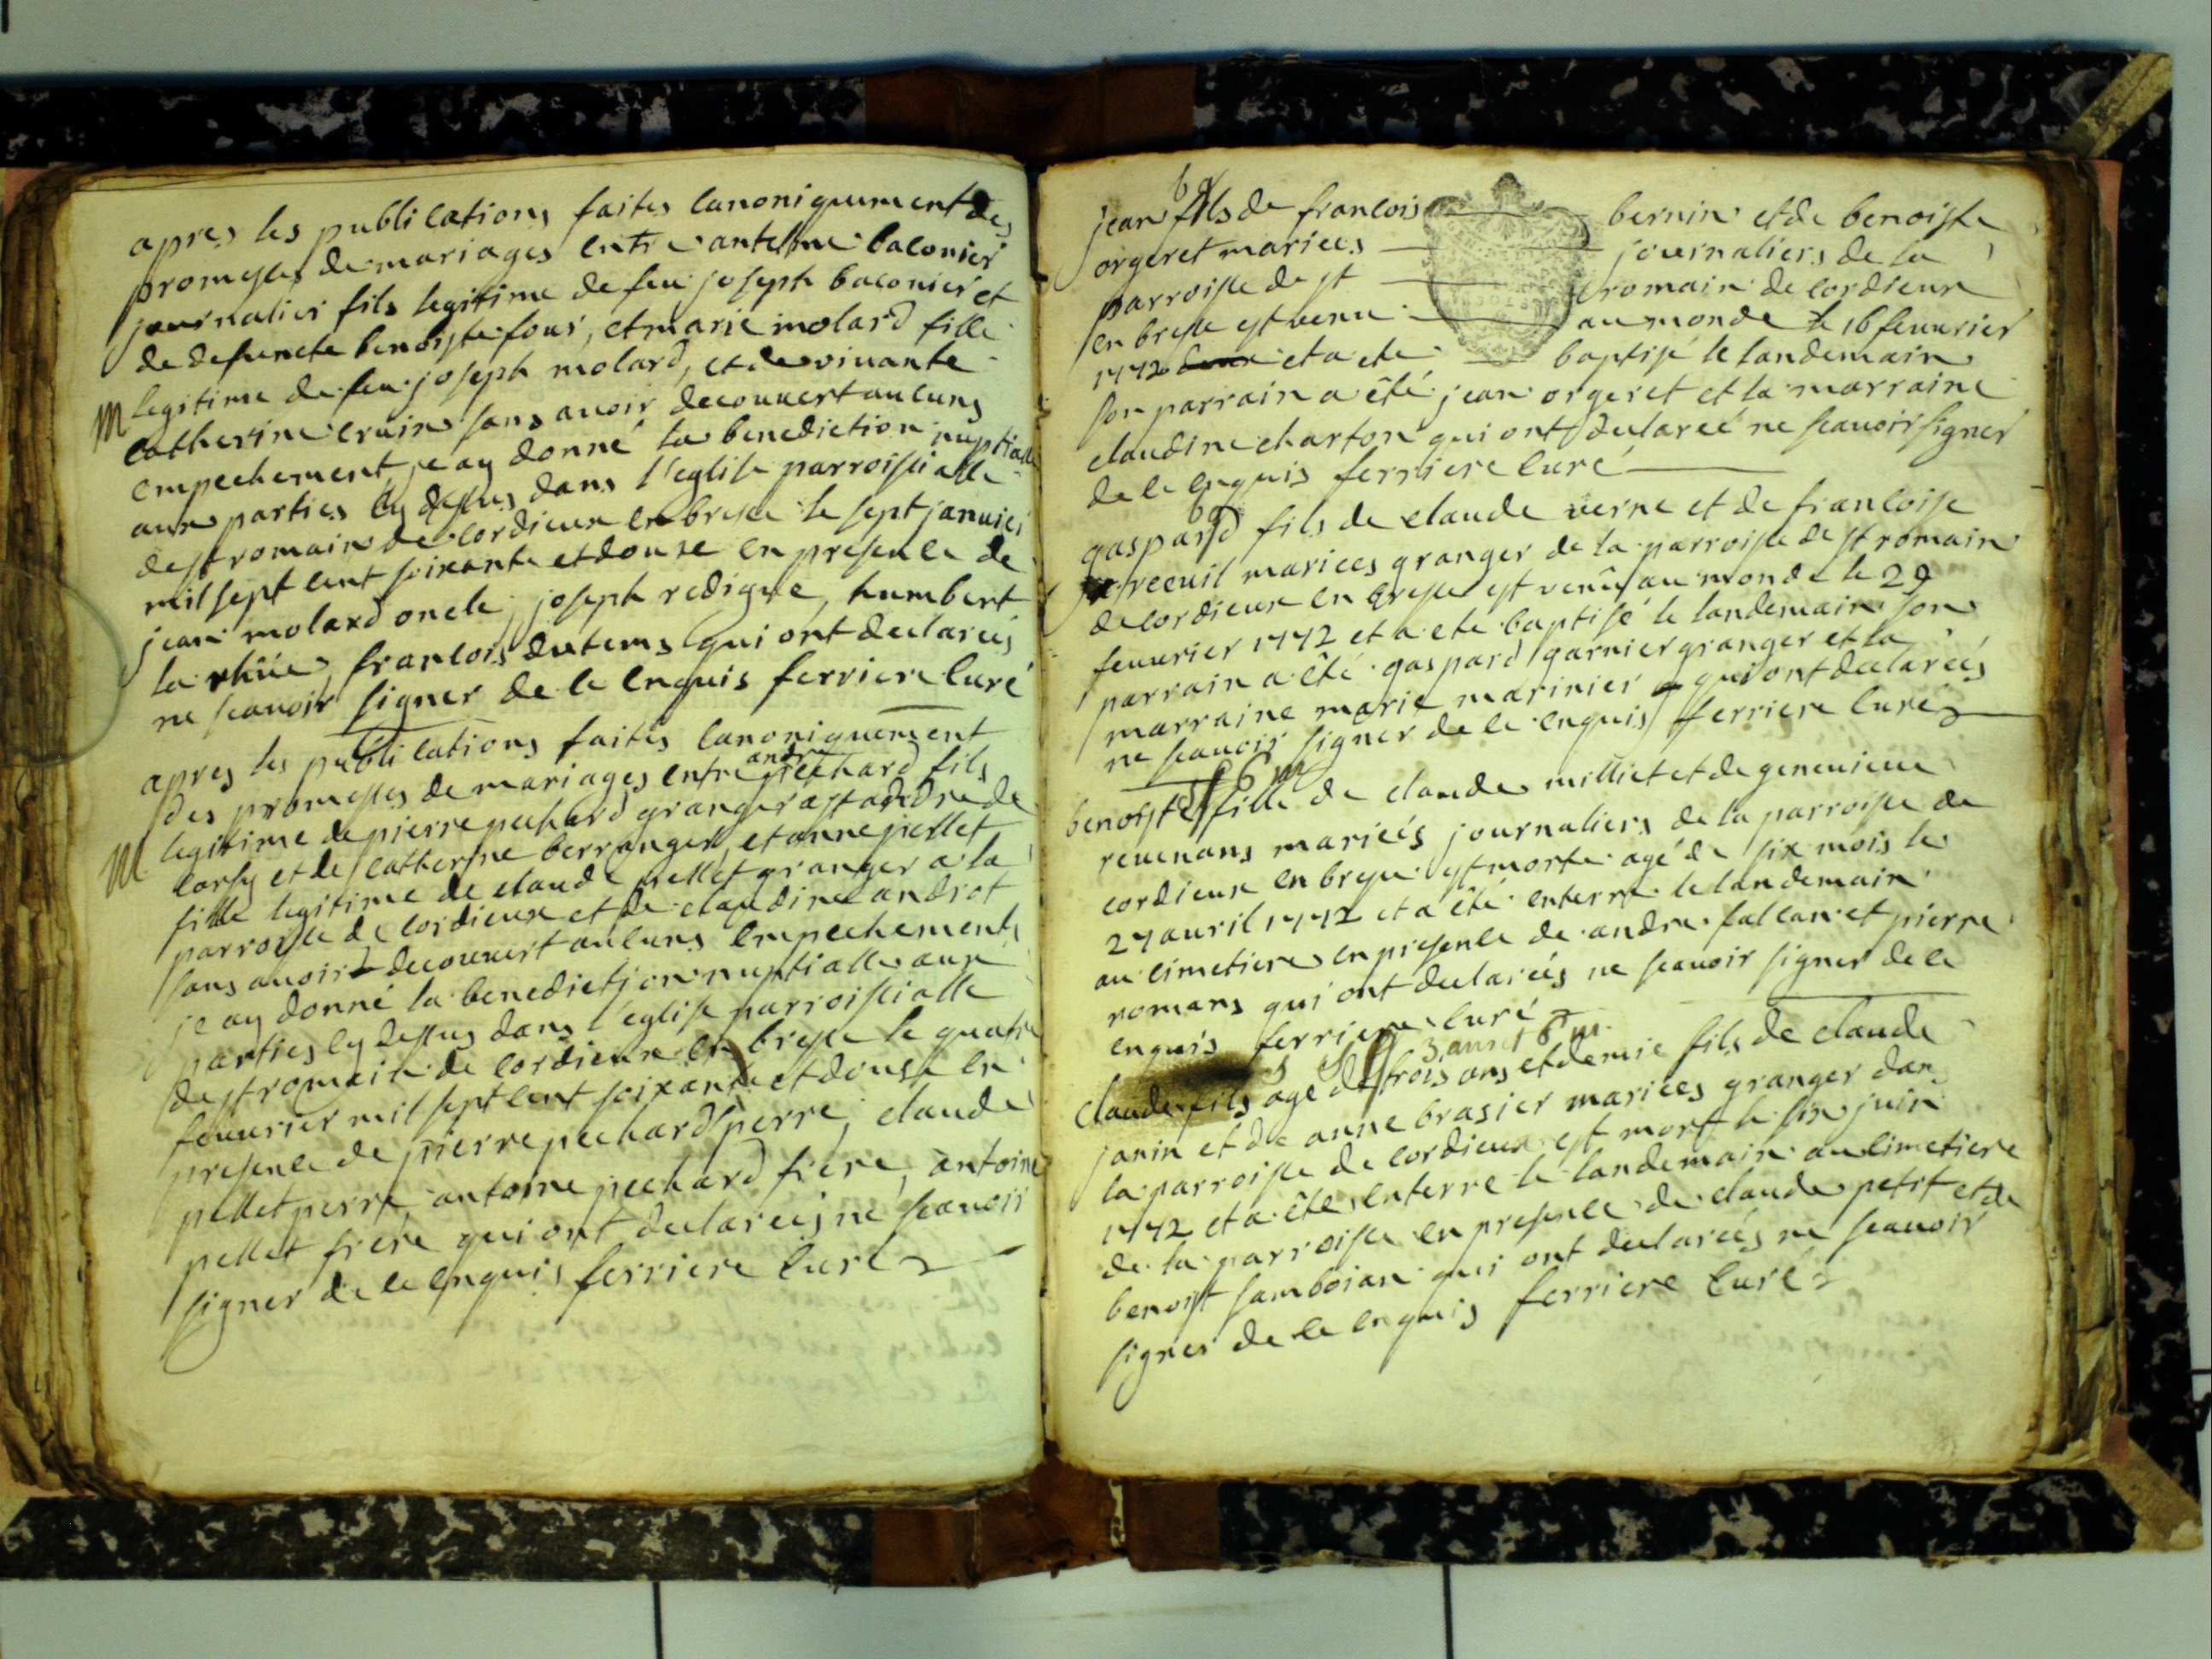 apres les publications faites canoniquement des
promesses de mariages entre antelme baconier
journalier fils legitime de feu joseph baconier et
de defuncte benoiste four, et marie molard fille
M legitime de feu joseph molard, et de vivante
catherine cruin sans avoir decouvert aucuns
empechement, je ay donné la benediction nuptialle
aux parties cy dessus dans l'eglise parroissialle
de st romain de cordieux en bresse le sept janvier
mil sept cent soixante et douse en presence de
jean molard oncle, joseph redigue, humbert
la rhüe, francois dutems qui ont declareés
ne scavoir signer de ce enquis ferriere curé
apres les publications faites canoniquement
des promesses de mariages entre andre pechard fils
legitime de pierre pechard granger a st andre de
M corsy et de catherine berranger, et anne pellet
fille legitime de claude pellet granger a la
parroisse de cordieux et de claudine androt
sans avoir decouvert aucuns empechements
je ay donné la benediction nuptialle aux
parties cy dessus dans l'eglise parroissialle
de st romain de cordieux en bresse le quatre
fevvrier mil sept cent soixante et douse en
presence de pierre pechard perre, claude
pellet perre, antoine pechard frere, antoine
pellet frere qui ont declareés ne scavoir
signer de ce enquis ferriere curé
jean fils de francois bernin et de benoiste
orgeret mariees journaliers de la
parroisse de st romain de cordieux
en bresse est venu au monde le 16 fevvrier
1772 et a ete baptisé le landemain
son parrain a êté jean orgeret et la marraine
claudine charton qui ont declareé ne scavoir signer
de ce enquis ferriere curé
gaspard fils de claude verne et de francoise
recuil mariees granger de la parroisse de st romain
de cordieux en bresse est venû au monde le 29
fevvrier 1772 et a ete baptisé le landemain son
parrain a êté gaspard garnier granger et la
marraine marie marinier qui ont declareés
ne scavoir signer de ce enquis ferriere curé
6 m
benoiste fille de claude milliet et de genevieve
revenans marieés journaliers de la parroisse de
cordieux en bresse est morte agé de six mois le
27 avril 1772 et a êté enterre le landemain
au cimetiere en presence de andre fallan et pierre
romans qui ont declareés ne scavoir signer de ce
enquis ferriere curé
3 ans 6 m.
claude fils age de trois ans et demie fils de claude
janin et de anne brasier mariees granger dans
la parroisse de cordieux est mort le six juin
1772 et a êté enterre le landemain au cimetiere
de la parroisse en presence de claude petit et de
benoist samboian qui ont declareés ne scavoir
signer de ce enquis ferriere curé